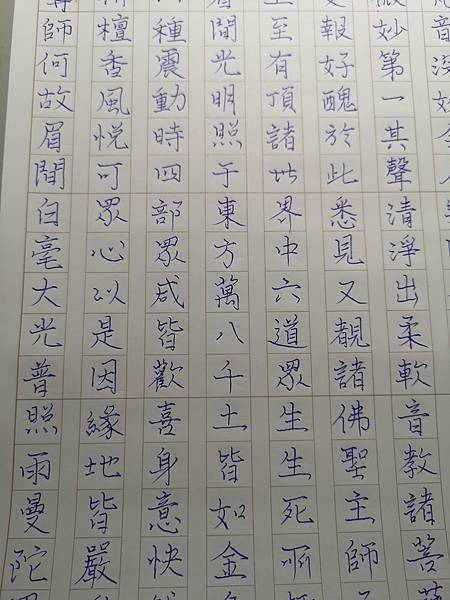 師何故眉間白毫大光普照雨曼陀
檀香風悅可眾心以是因緣地皆嚴
種震動時四部眾咸皆歡喜身意快
間光明照于東方萬八千土皆如金
至有頂諸世界中六道眾生生死所
報好醜於此悉見又覩諸佛聖主師
妙第一其聲清淨出柔軟音教諸菩